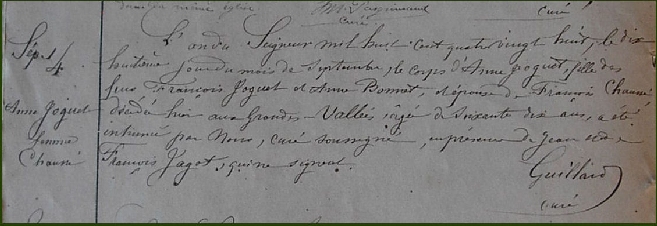 dans la même église.
curé.
curé
Sép. 4
Anne Joguet
femme
Chauvé
L'an du Seigneur mil huit cent quatre vingt huit, le dix
huitième jour du mois de Septembre, le corps d'Anne Joguet, fille des
feus François Joguet et Anne Bonnet, et épouse de François Chauvé
décédée hier aux Grandes Vallées âgée de soixante dix ans, a été
inhumé par Nous, curé soussigné, en présence de Jean et de
François Jagot, qui ne signent.
Guillard
curé